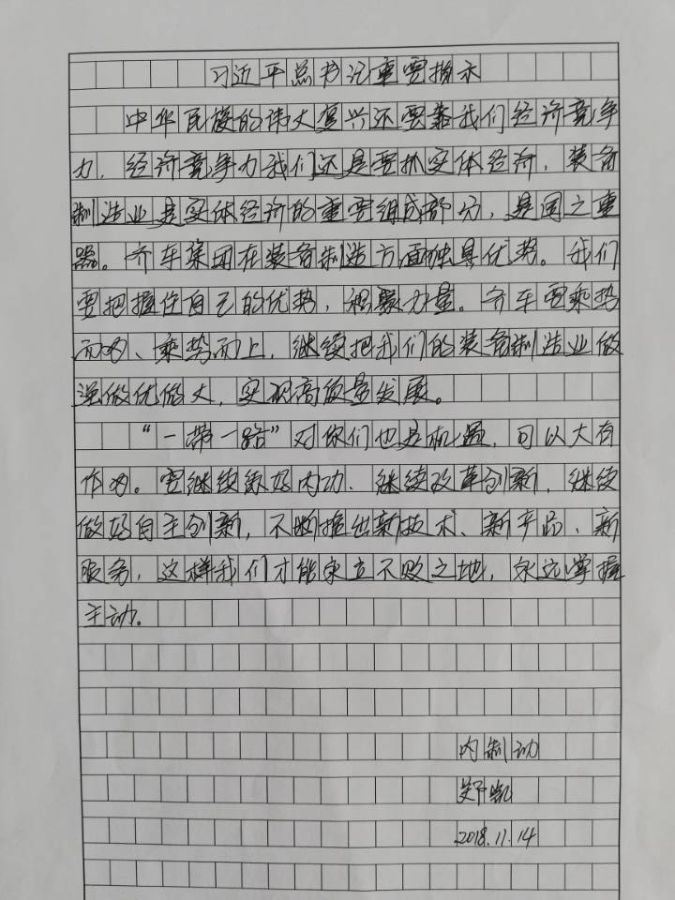 习近平总书记重要指示
中华民族的伟大复兴还要靠我们经济竞争
力，经济竞争力我们还是要抓实体经济，装备
制造业是实体经济的重要组成部分，是国之重
器。齐车集团在装备制造方面独具优势。我们
要把握住自己的优势，积聚力量。齐车要乘势
而为、乘势而上，继续把我们的装备制造业做
强做优做大，实现高质量发展。
“一带一路”对你们也是机遇，可以大有
作为。要继续练好内功、继续改革创新，继续
做好自主创新，不断推出新技术、新产品、新
服务，这样我们才能永立不败之地，永远掌握
主动。
内制动
郑凯
2018.11.14